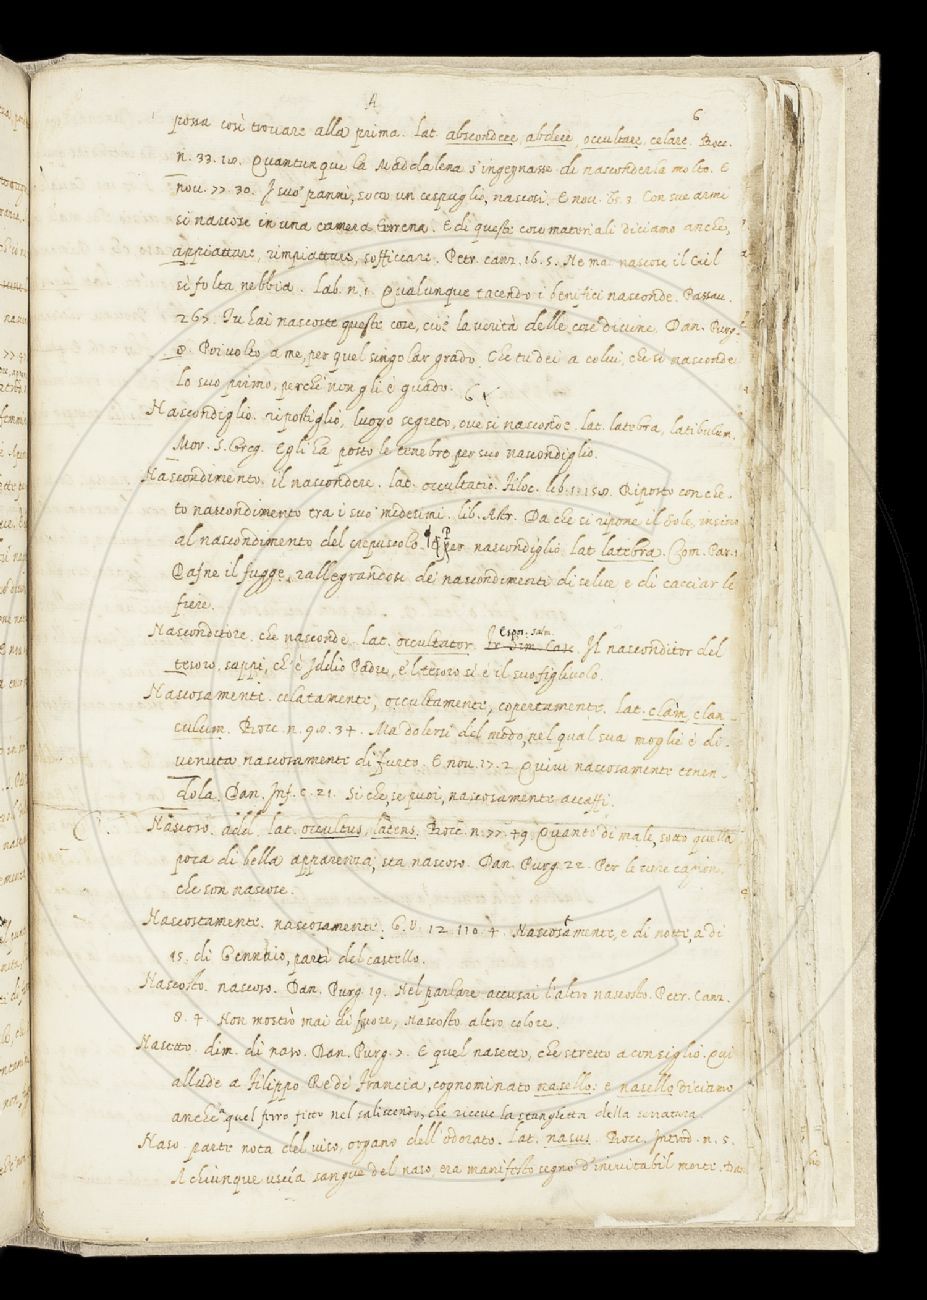 A
6
possa così trovare alla prima. lat. abscondere, abdere, occultare, celare. Bocc.
n. 33. 10. Quantunque la Madalena s'ingegnasse di nasconderla molto. E
nov. 77. 30. I suo' panni, sotto un cespuglio, nascosi. E nov. 3. Con sue armi
si nascose in una camera terrena. E di queste cose materiali diciamo anche,
appiattare, rimpiattare, sofficcare. Petr. canz. 16. 5. Ne ma nascose il Ciel
sì folta nebbia. lab. n. 1. Qualunque tacendo i benifici nasconde. Passav.
267. Tu hai nascoste queste cose, cioè la verità delle cose divine. Dan. Purg.
8. Poi volto a me, per quel singolar grado Che tu dei a colui, che sì nasconde
lo suo primo, perchè non gli è guado.
Nascondiglio. ripostiglio, luogo segreto, ove si nasconde. lat. latebra, latibulum.
Mor. S. Greg. Egli ha posto le tenebre per suo nascondiglio.
Nascondimento. il nascondere. lat. occultatio. Filoc. lib. Riposto con che-
to nascondimento tra i suo' medesimi. lib. Astr. Da che si ripone il Sole, insino
al nascondimento del crepuscolo. per nascondiglio lat. latebra. Com. Par. 1
Dafne il fugge, rallegrandosi de' nascondimenti di selve, e di cacciar le
fiere.
Nasconditore. che nasconde. lat. occultator. Espos. Salm. Il nasconditor del
tesoro, sappi, ch'è Iddio Padre, e 'l tesoro si è il suo figliuolo.
Nascosamente. celatamente, occultamente, copertamente. lat. clàm, clan-
culum. Bocc. n. 90. 34. Ma dolersi del modo, nel qual sua moglie è di-
venuta nascosamente di furto. E nov. 17. 2 Quivi nascosamente tenen-
dola. Dan. Inf. c. 21. Si che, se puoi, nascosamente accaffi.
Nascoso. add. lat. occultus, latens. Bocc. n. 77. 49. Quanto di male, sotto quella
poca di bella apparenza, sta nascoso. Dan. Purg. 22. Per le vere cagion,
che son nascose.
Nascostamente. nascosamente. G. V. 12 110. 4. Nascostamente, e di notte, a dì
15. di Gennaio, partì del castello.
Nascosto. nascoso. Dan. Purg. 19. Nel parlare accusai l'altro nascosto. Petr. Canz.
8. 4. Non mostrò mai di fuore, Nascosto altro colore.
Nasetto. dim. di naso. Dan. Purg. 7. E quel nasetto, che stretto a consiglio. Qui
allude a Filippo Re di Francia, cognominato nasello: e nasello diciamo
anche quel ferro fitto nel saliscendo, che riceve la stanghetta della serratura.
Naso. parte nota del viso, organo dell'odorato. lat. nasus. Bocc. Introd. n. 5.
A chiunque uscia sangue del naso, era manifesto segno d'inevitabil morte. Dan.